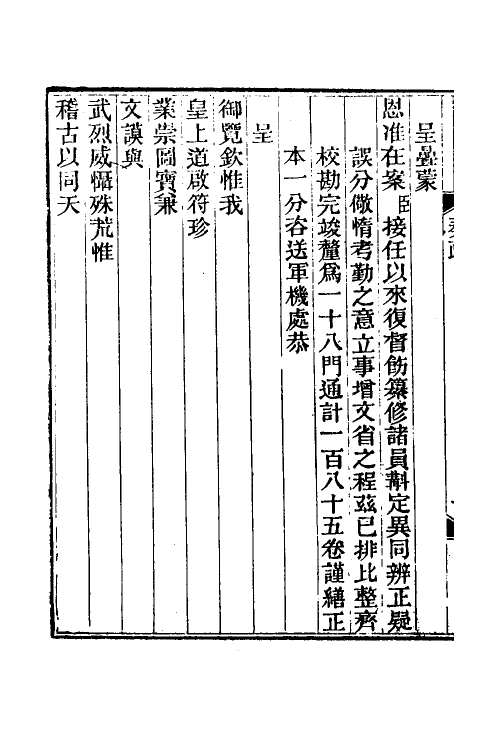 呈曡蒙
恩准在案臣接任以來復督飭纂修諸員斠定異同辨正疑
誤分儆惰考勤之意立事增文省之程茲已排比整齊
校勘完竣釐爲一十八門通計一百八十五卷謹繕正
本一分咨送軍機處恭
呈
御覽欽惟我
皇上道啟符珍
業崇圖寶兼
文謨與
武烈威懾殊荒惟
稽古以同天